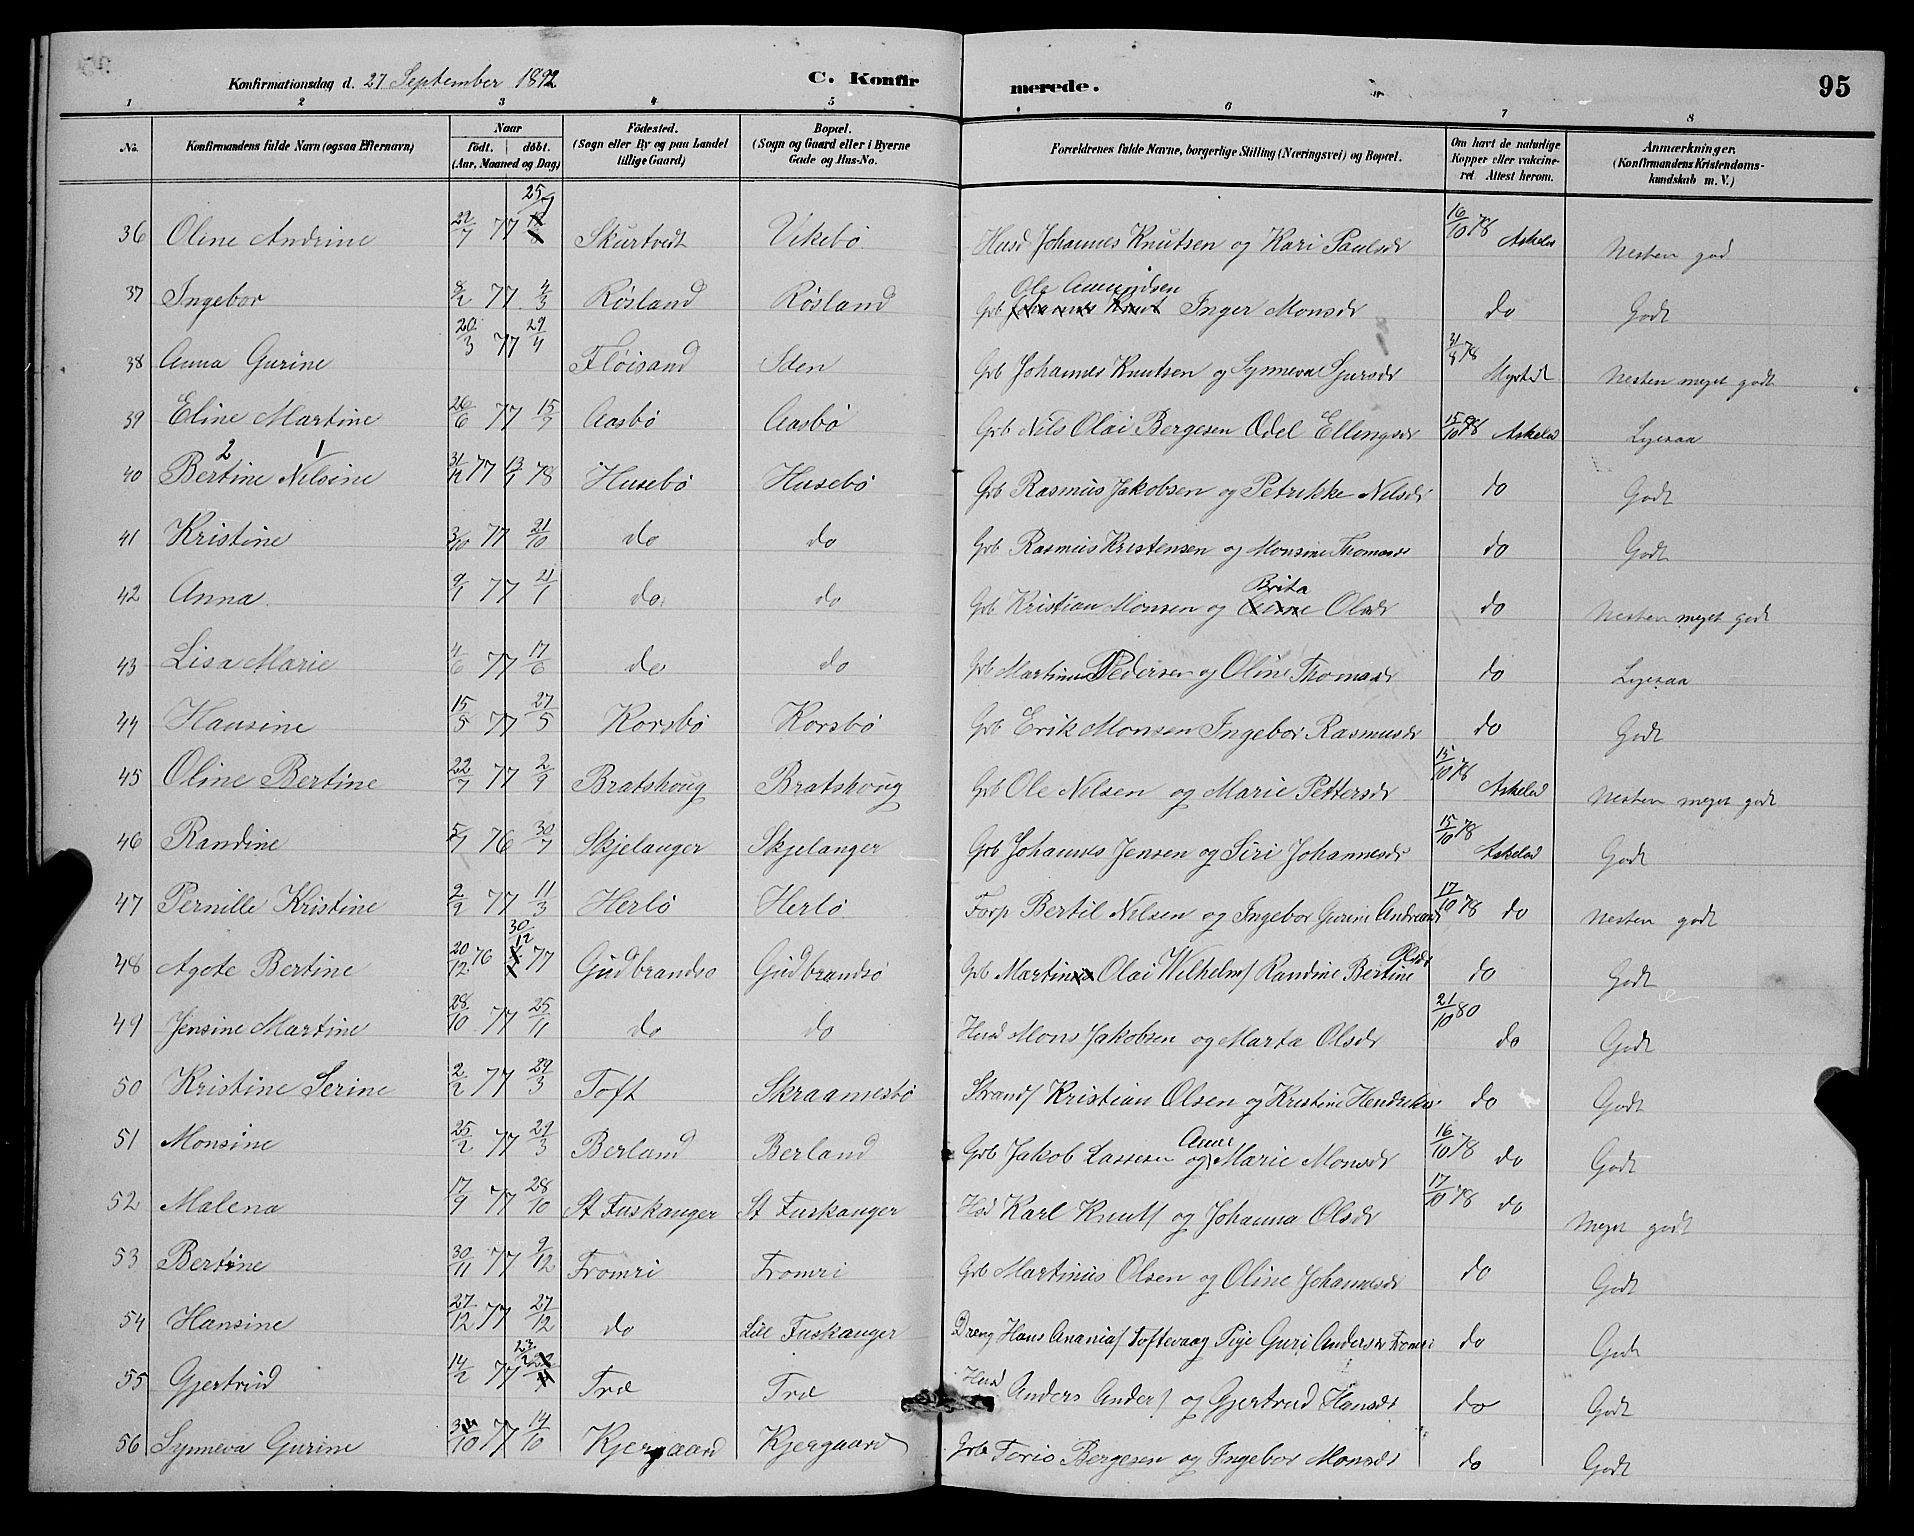 Konfirmationsdag d. 27 September 1892 C. Konfirmerede. 95
1 2 3 4 5 6 7 8
No. Konfirmandens fulde Navn (ogsaa Efternavn) Naar født. døbt. (Aar, Maaned og Dag) Fødested. (Sogn eller By og paa Landet tillige Gaard) Bopæl. (Sogn og Gaard eller i Byerne Gade og Hus-No. Forældrenes fulde Navne, borgerlige Stilling (Næringsvei) og Bopæl. Om havt de naturlige Kopper eller vakcineret Attest herom. Anmærkninger. (Konfirmandens Kristendomskundskab m. V.)
36 Oline Andrine 22/7 77 25/7 Skurtvedt Vikebø Husd Johannes Knutsen og Kari Paulsdr 16/10 78 Askeld Nesten god
37 Ingebor 8/2 77 4/3 Røsland Røsland Grb Ole Amundsen Inger Monsdr do Godt
38 Anna Gurine 20/3 77 29/4 Fløisand Sten Grb Johannes Knutsen og Synneva Sjursdr 31/8 78 Nesten meget godt
39 Eline Martine 26/6 77 15/7 Aasbø Aasbø Grb Nils Olai Bergesen Odel Ellingsdr 15/10 78 Askeld
40 Bertine 2 Nilsine 1 31/12 77 13/1 78 Husebø Husebø Grb Rasmus Jakobsen og Petrikke Nilsdr do Godt
41 Kristine 3/10 77 21/10 do do Grb Rasmus Kristensen og Monsine Thomasdr do Godt
42 Anna 9/1 77 21/1 do do Grb Kristian Monsen og Brita Olsdr do Nesten meget godt
43 Lisa Marie 4/6 77 17/6 do do Grb Martinus Pedersen og Oline Thomasdr do
44 Hansine 15/5 77 27/5 Korsbø Korsbø Grb Erik Monsen Ingebor Rasmusdr do Godt
45 Oline Bertine 22/7 77 2/9 Bratshoug Bratshoug Grb Ole Nilsen og Marie Pettersdr 15/10 78 Askeld Nesten meget godt
46 Randine 5/7 76 30/7 Skjelanger Skjelanger Grb Johannes Jensen og Siri Johannesdr 15/10 78 Askeld Godt
47 Pernille Kristine 2/2 77 11/3 Herlø Herlø Forp Bertil Nilsen og Ingebor Gurine Andreasd 17/10 78 do Nesten godt
48 Agote Bertine 20/12 76 30/12 77 Gudbrandsø Gudbrandsø Grb Martin Olai Wilhelms/ Randine Bertine Olsdr do Godt
49 Jensine Martine 28/10 77 25/11 do do Husd Mons Jakobsen og Marta Olsdr 21/10 80 do Godt
50 Kristine Serine 2/2 77 29/3 Toft Skraamestø Strands/ Kristian Olsen og Kristine Hendriks do Godt
51 Monsine 25/2 77 29/3 Berland Berland Grb Jakob Lassesen og Anne Marie Monsdr 16/10 78 do Godt
52 Malena 17/9 77 28/10 St Fuskanger St Fuskanger Hsd Karl Knuts/ og Johanna Olsdr 17/10 78 do Meget godt
53 Bertine 30/11 77 9/12 Fromri Fromri Grb Martinus Olsen og Oline Johannesdr do Godt
54 Hansine 27/12 77 27/12 do Lill Fuskanger Dreng Hans Ananias/ Toftevaag Pige Guri Andersdr Fromri do Godt
55 Gjertrud 14/2 77 23/2 Træ Træ Husd Anders Anders/ og Gjertrud Hansdr do Godt
56 Synneva Gurine 77 14/10 Kjergaard Kjergaard Grb Toris Bergesen og Ingebor Monsdr do Godt